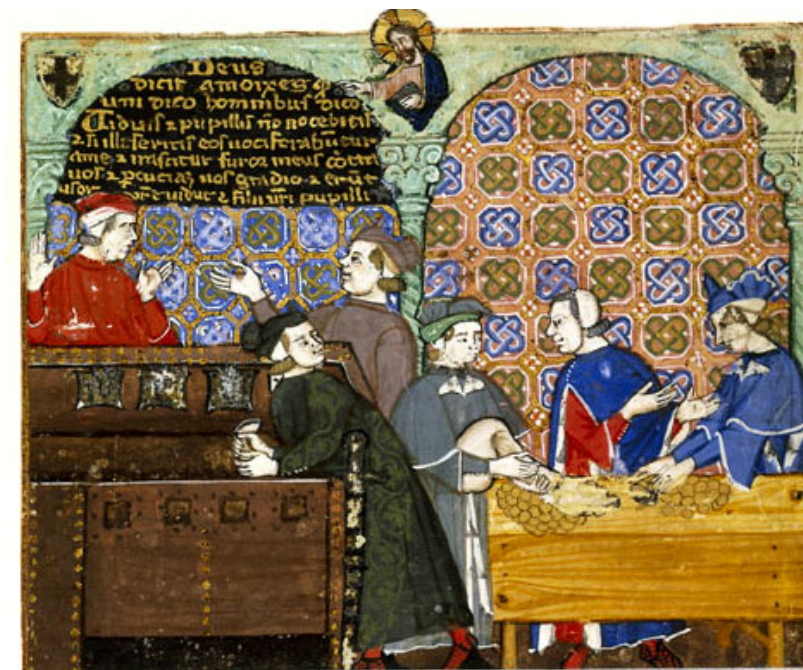 Deus
dicit amoixes q
uni dico hominibus dico
Uiduis ⁊ pupillis nō nocebitis
⁊ si illeseritis eos uociferabūtur
ame ⁊ irascitur furor meus cōtra
uos ⁊ p̄cuciaʒ uos gladio ⁊ erūt
uidue ⁊ filii ūri pupilli